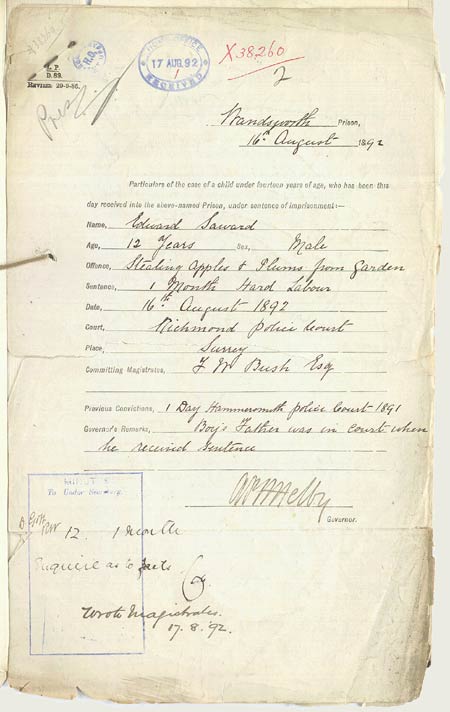 X38260
HOME OFFICE
17 AUG.92
RECEIVED
2
G. P.
D. 89.
Revism 29-9-86.
Wandsworth Prison,
16th August 1892
Particulars of the case of a child under fourteen years of age, who has been this
day received into the above-named Prison, under sentence of imprisonment:—
Name, Edward Saward
Age, 12 Years Sex, Male
Offence, Stealing Apples & Plums from Garden
Sentence, 1 Month Hard Labour
Date, 16th August 1892
Court, Richmond Police Court
Place, Surrey
Committing Magistrates, F W Bush Esq
Previous Convictions, 1 Day Hammersmith Police Court 1891
Governor's Remarks, Boy's Father was in Court when
he received Sentence
Governor.
MINUTES
To Under Secretary.
12. 1 month
Enquire as to facts
Wrote Magistrates.
17.8.92.